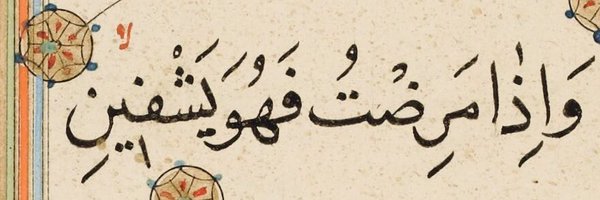 وَاِذَا مَرِضْتُ فَهُوَ يَشْفٖينِ
لا